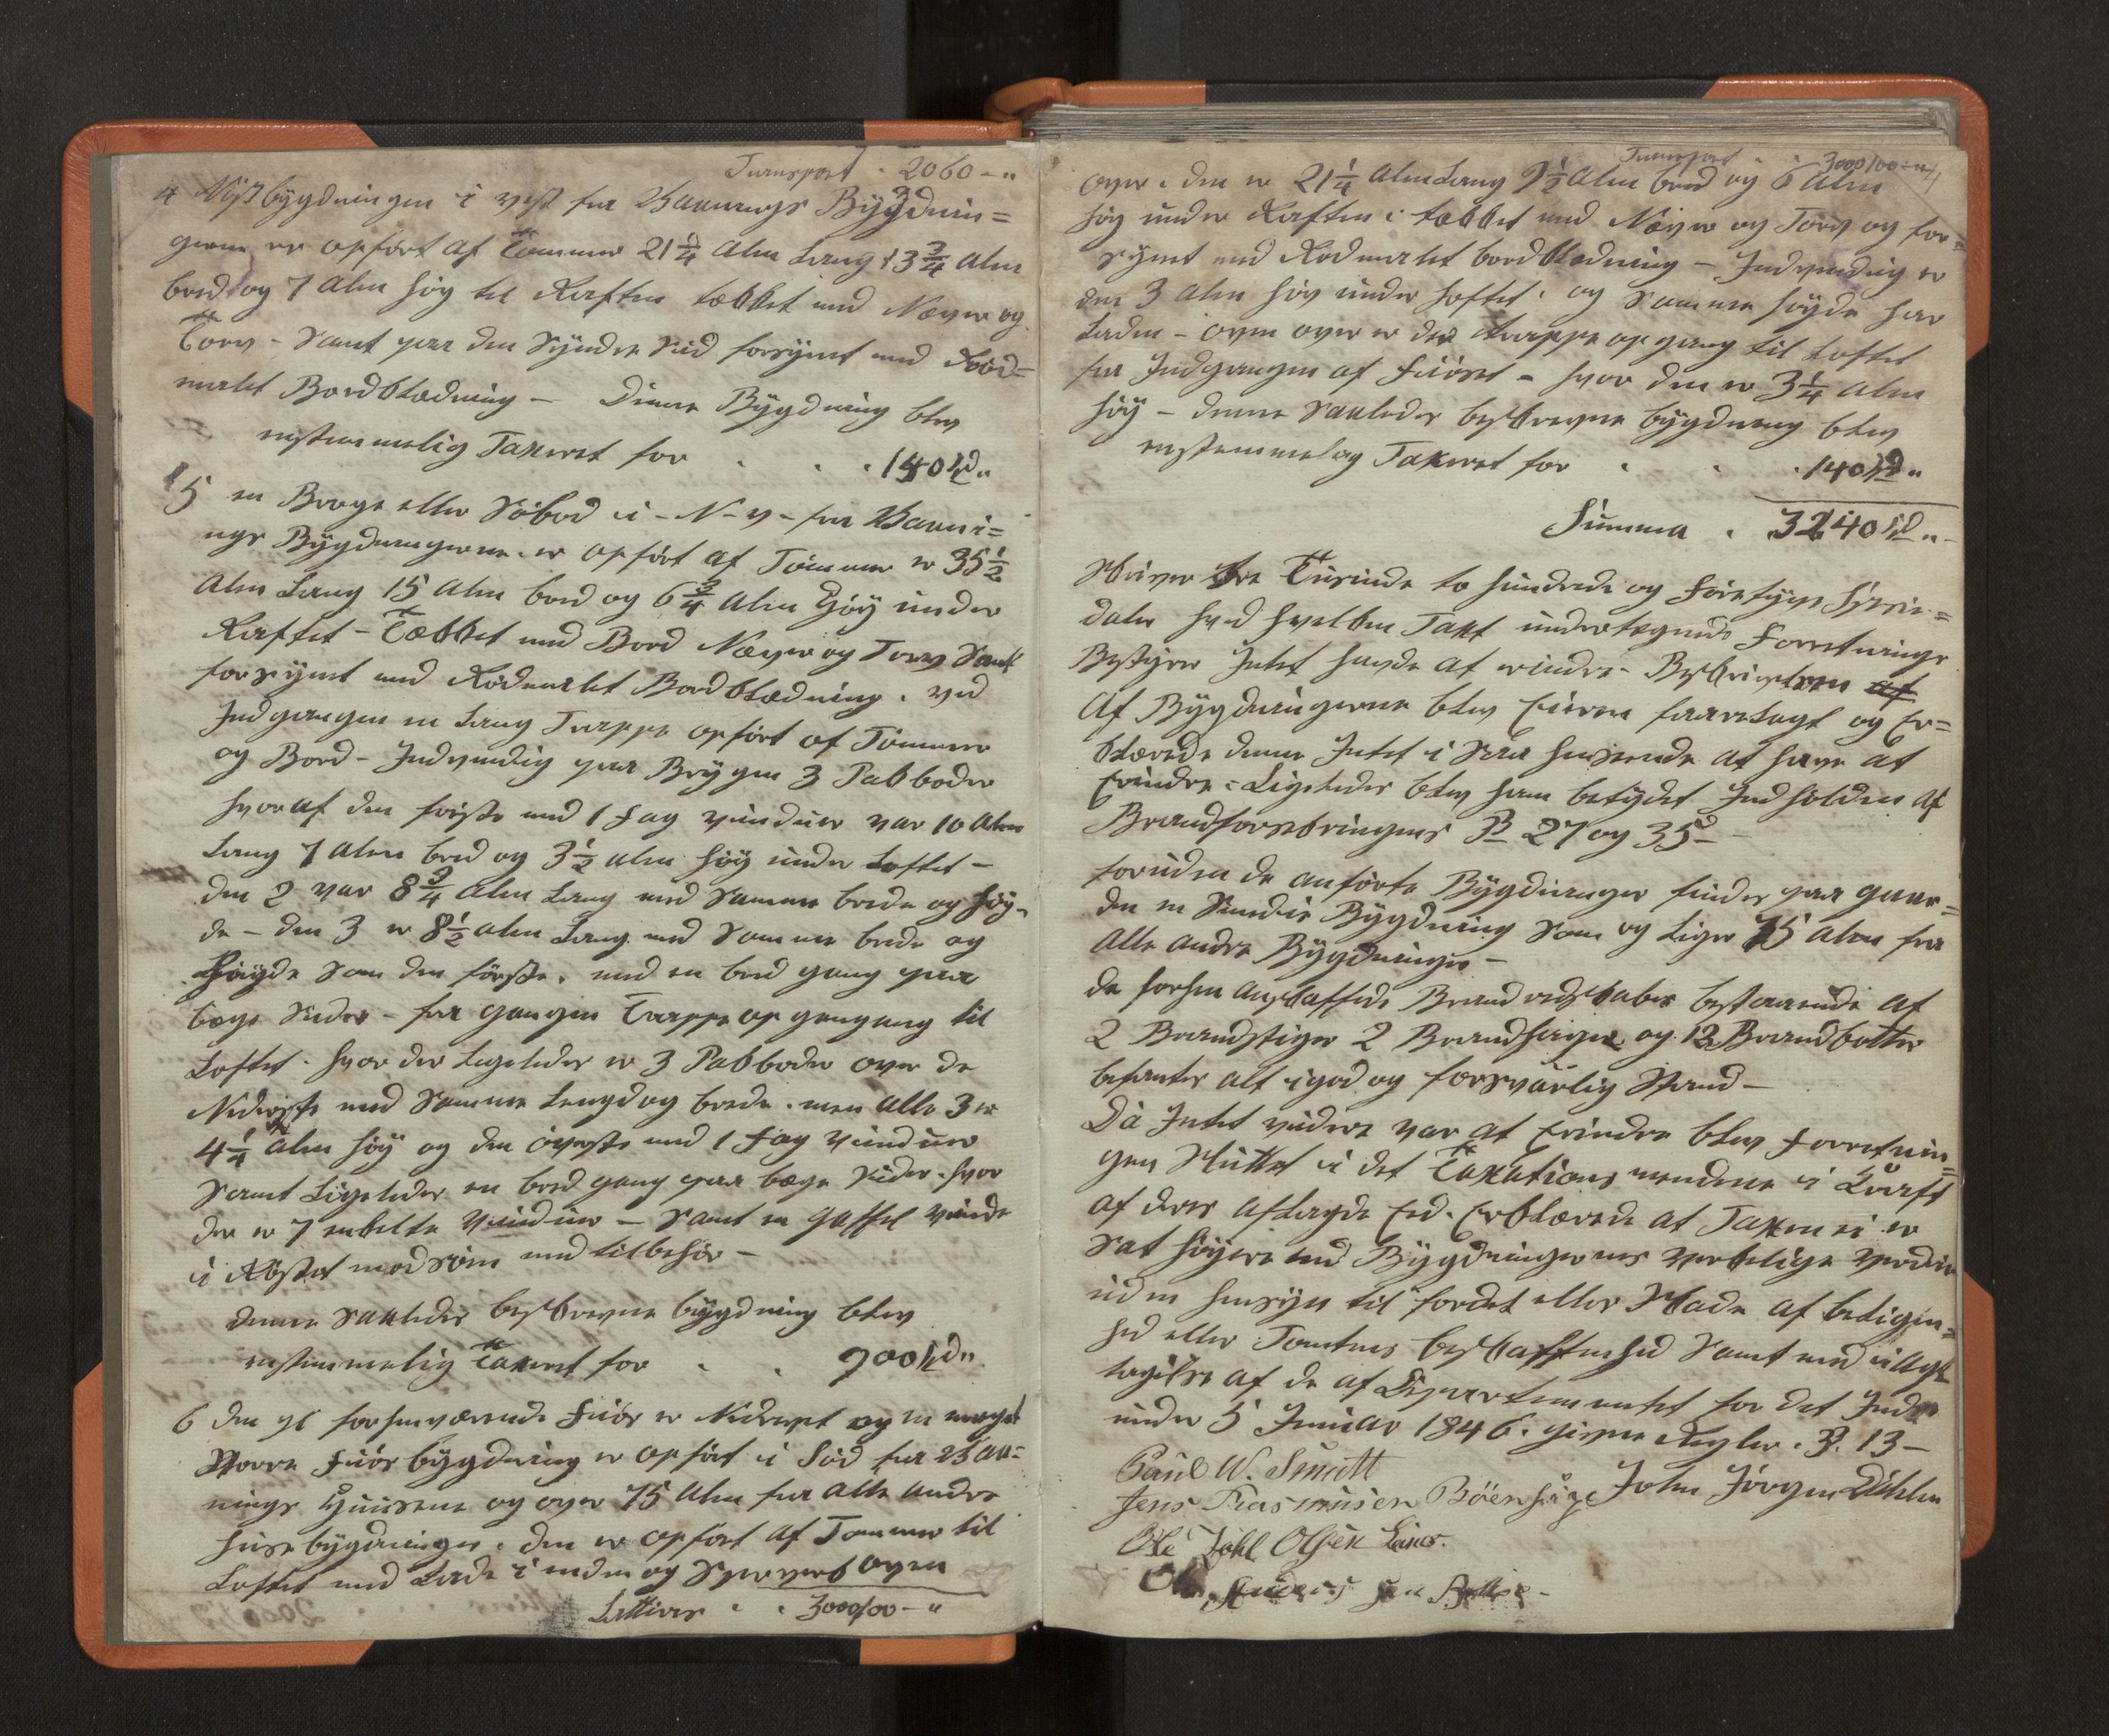 Transport . 2060 - "
4 Nøstbygdningen i vest fra Vaanings Bygdnin=
gerne er opført af Tømmer 21 1/4 Alen Lang 13 3/4 Alen
bred og 7 Alen høy til Raften tækket med Næver og
Torv - Samt paa den Syndre Sid forsynet med Rød=
malet Bordklædning - Denne Bygdning blev
enstemmelig Taxeret for . . . 140 Spd "
5 en Brøge eller Søbod i - N - v - fra Vaani=
ngs Bygdningerne. er opført af Tømmer er 35 1/2
Alen Lang 15 Alen bred og 6 3/4 Alen Høy under
Raftet - Tækket med Bord Næver og Torv Samt
forsynet med Rødmalet Bordklædning. ved
Indgangen en Lang Trappe opført af Tømmer
og Bord - Indvendig paa Brygen 3 Pakboder
hvoraf den første med 1 Fag vinduer var 10 Alen
Lang 7 Alen bred og 3 1/2 Alen høy under Loftet -
den 2 var 8 3/4 Alen Lang med Samme brede og Høy-
de - den 3 er 8 1/2 Alen Lang med Samme brede og
Høyde Som den første. med en bred gang paa
bæge Sider - fra gangen Trappe op gengang til
Loftet. hvor der Ligeledes er 3 Pakboder over de
Nederste med Samme Lengd og brede. men Alle 3 er
4 1/4 Alen høy og den øverste med 1 Fag Vinduer
Samt Ligeledes en bred gang paa bæge Sider. hvor
der er 7 enkelte Vinduer - Samt en Gaffel vinde
i Røstet mod søen med tilbehør -
denne Saaledes beskrevne bygdning blev
enstemmelig Taxeret for . . 700 Spd "
6 den 96 forhenværende Fiøs er Nedrevet og en meget
Større Fiøsbygdning er opført i Sød fra Vaa=
nings Huusene og over 75 Alen fra Alle andre
huse bygdninger. den er opført af Tømmer til
Loftet med Lade i enden og Sperverk oven
Lattius . . 3000/00 - "
Transport " 3000/00 - "
over. den er 21 1/4 Alen Lang 9 1/2 Alen bred og 6 Alen
høy under Raften. tækket med Næver og Torv og for=
synet med Rødmalet bordklædning - Indvendig er
den 3 Alen høy under Loftet. og Samme høyde har
Laden - oven over er der trappe opgang til Loftet
fra Indgangen af Fiøset - hvor den er 3 1/4 Alen
høy - denne Saaledes beskrevne bygdning blev
enstemmelig Taxeret for . . . 140 Spd "
Summa . 3240 Spd " -
Skriver tre Tusinde to hundrede ogFøretyve Specie=
daler hved hvelken Taxt undertegnede Forretnings
Bestyrer Intet havde at erindre - Beskrivelsen
Af Bygdningerne blev Eieren forelagt og Er=
klærede denne Intet i Saa henseende At have at
Erindre = Ligeledes blev ham betydet Indholden af
Brandforsekringens § 27 og 35 -
foruden de anførte Bygdninger findes paa gaar=
den en Smedie Bygdning Som og Liger 75 Alen fra
Alle Andre Bygdninger -
De forhen anskaffede Brandredskaber bestaaende Af
2 Brandstiger 2 Brandhager og 12 Brandbøtter
befantes alt i god og forsvarlig Stand -
Da Intet videre var at Erindre blev Forretnin=
gen Sluttet i det Taxations mendene i Kraft
af deres aflagde Eed. Erklærede At Taxten ei er
Sat Høyere end Bygdningernes verkelige Verdie
uden hensyn til fordel eller Skade af beligen=
hed eller Tomtens beskaffenhed Samt med iagt
tagelse af de af Departementet for det Indre
under 5 Januar 1846. givne Regler. §. 13 -
Paul W. Smidtt
Jens Rasmusen Böenhüge John Jörgen Dahlen
Ole Johl Olsen